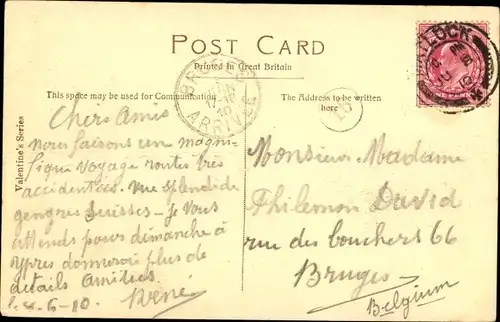 POST CARD
Printed in Great Britain
This space may be used for Communication
The Address to be written
here
Valentine's Series
MATLOCK
BRUGES
ARRIVÉE
Chers Amis
nous faisons un magni-
fique voyage routes très
accidentées. vue splendide
gengres Suisses - je vous
attends pour dimanche à
ypres donnerai plus de
détails Amitiés
6-10 René
Monsieur Madame
Philemon David
rue des bouchers 66
Bruges
Belgium